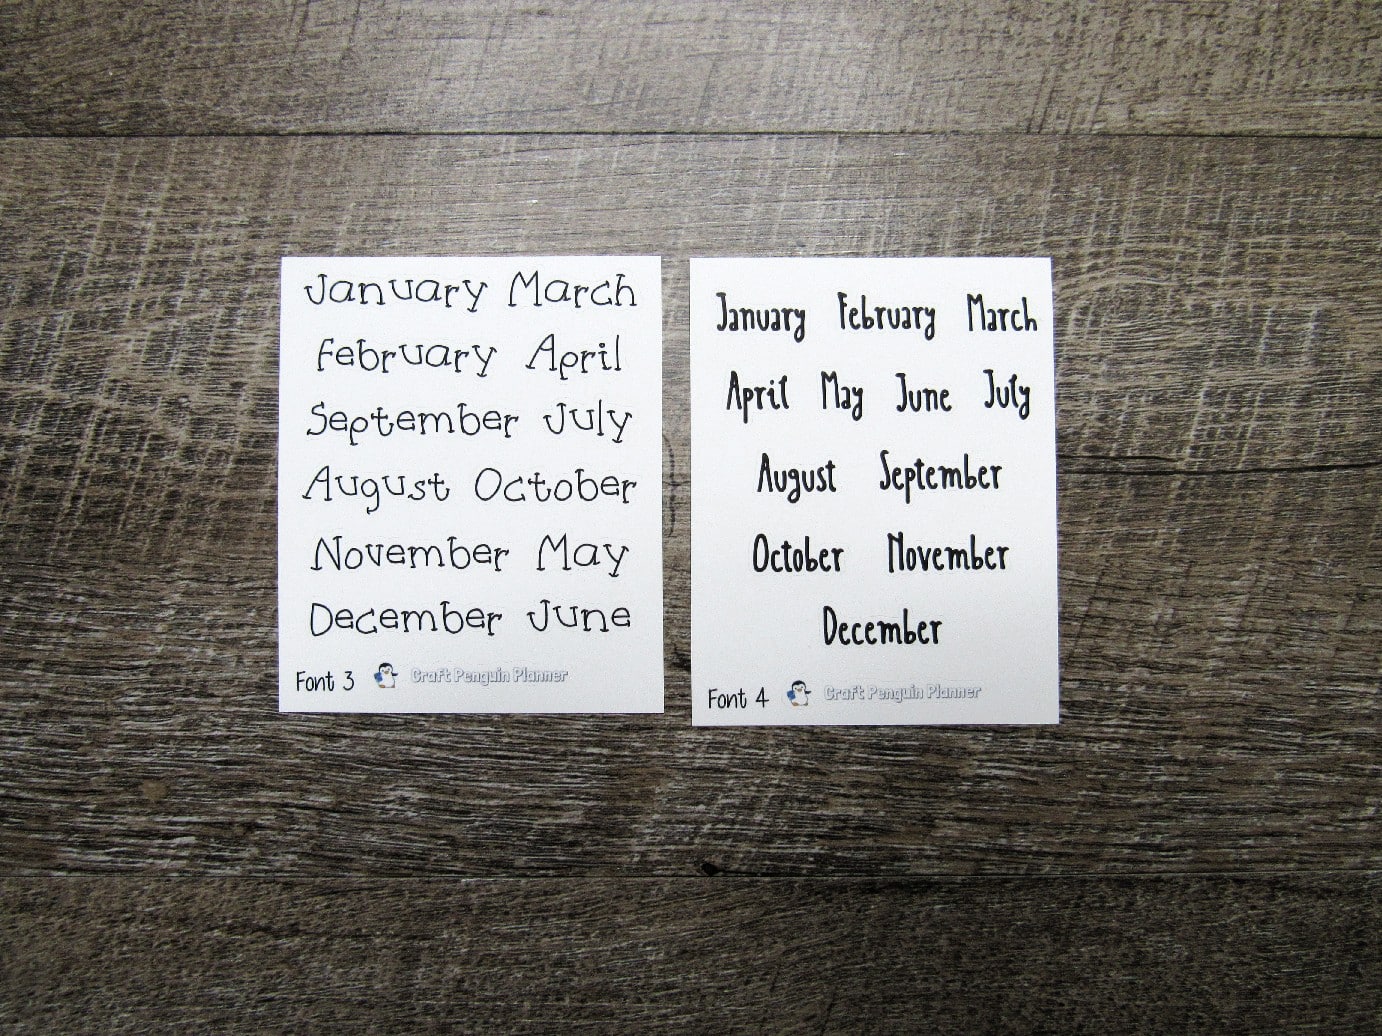 January March
February April
September July
August October
November May
December June
Font 3 Craft Penguin Planner
January February March
April May June July
August September
October November
December
Font 4 Craft Penguin Planner